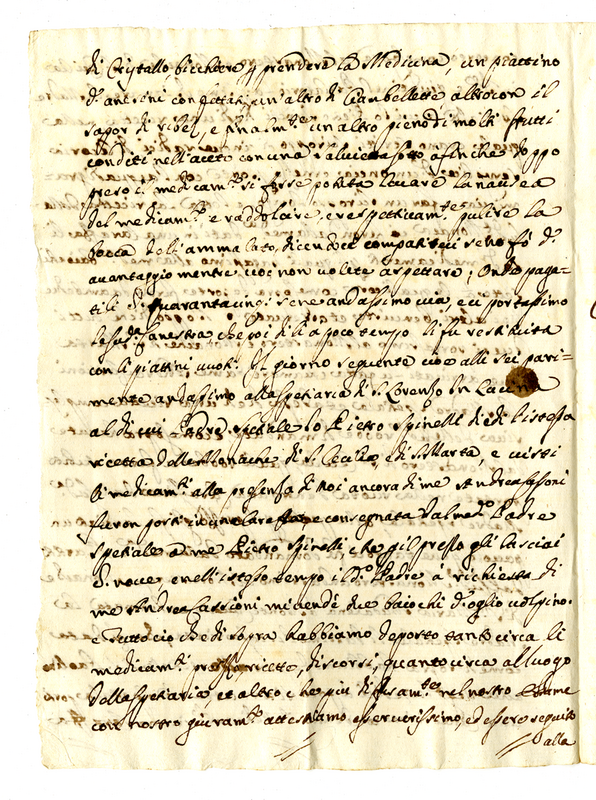 di Cristallo bicchiere p prendere la Medicina, un piattino
d'anesini confettati, un'altro di Ciambellette altro con il
sapor di ribes, e finalm.te un altro pieno di molti frutti
conditi nell'aceto con una salvietta sotto affinche doppo
preso il medicam.to si fosse potuta levare la nausea
del medicam.to e raddolcire, e respettivam.te pulire la
bocca dell'ammalato, dicendoci compatiteci se no fò d.
avantaggio mentre voi non volete aspettare; Onde paga-
tili quarantauno se ne andassimo via, e ci portassimo
la sud.a canestra che poi di lì a poco tempo li fu restituita
con li piattini vuoti. Il giorno seguente cioè alli sei pari=
mente andassimo alla spetiaria di S. Lorenzo in Lucina
al di cui Padre spetiale Io Pietro Spinelli diedi l'istessa
ricetta delle Monache di S. Cecilia, e di S. Marta, e visti
li medicam.ti alla presenza di noi ancora di me Andrea Fassoni
furon posti e consegnata dal med.o Padre
spetiale à me Pietro Spinelli, che p il prezzo gli lasciai
nove e nell'istesso tempo il d.o Padre à richiesta di
me Andrea Fassioni mi vendè due baiochi d'oglio volpino.
e Tutto ciò che di sopra habbiamo deposto tanto circa li
medicam.ti ricette, discorsi, quanto circa al luogo
della spetiaria, et altro che più diffusam.te nel nostro
con nostro giuram.to attestiamo esser verissimo, ed essere seguito
dalla